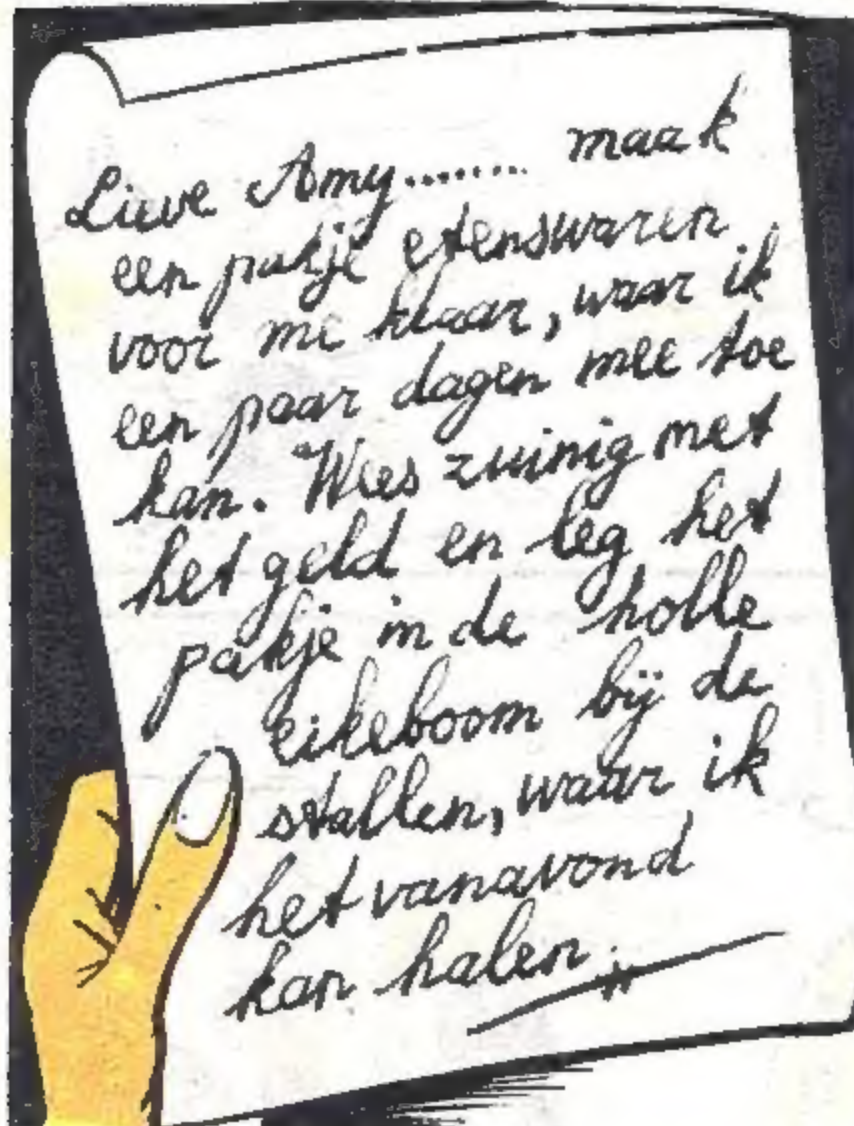 Lieve Amy........ maak
een pakje etenswaren
voor me klaar, waar ik
een paar dagen mee toe
kan. Wees zuinig met
het geld en leg het
pakje in de holle
eikeboom bij de
stallen, waar ik
het vanavond
kan halen.